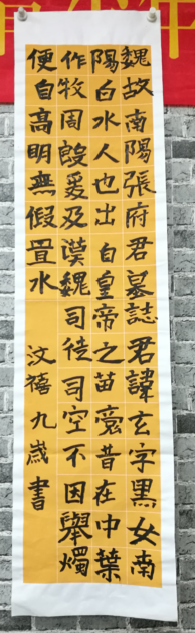 魏故南陽張府君墓誌君諱玄字黑女南
陽白水人也出自皇帝之苗裔昔在中葉
作牧周殷爰及漢魏司徒司空不因舉燭
便自高明無假置水
汶禧九歲書